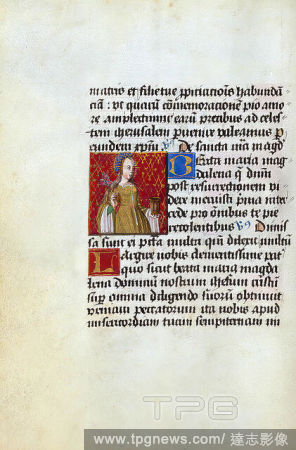 matris et filie tue propiciacionis habundan
ciam: ut quarum comemoracionem pio amo
re amplectimur earum precibus ad celes
tem iherusalem pervenire valeamus p
eundem xpm De sancta maria magd
Beata maria mag
dalena que diu
post resurrectionem vi
dere meruisti pma inter
cede pro omnibus te pie
recolentibus Dimis
sa sunt ei pcta multa qm dilexit multum
Largire nobis clementissime pat
quo sicut beata maria magda
lena dominum nostrum ihesum cristum
super omnia diligendo suorum obtinuit
veniam peccatorum ita nobis apud
misericordiam tuam sempiternam im
TPG
www.tpgnews.com / 達志影像